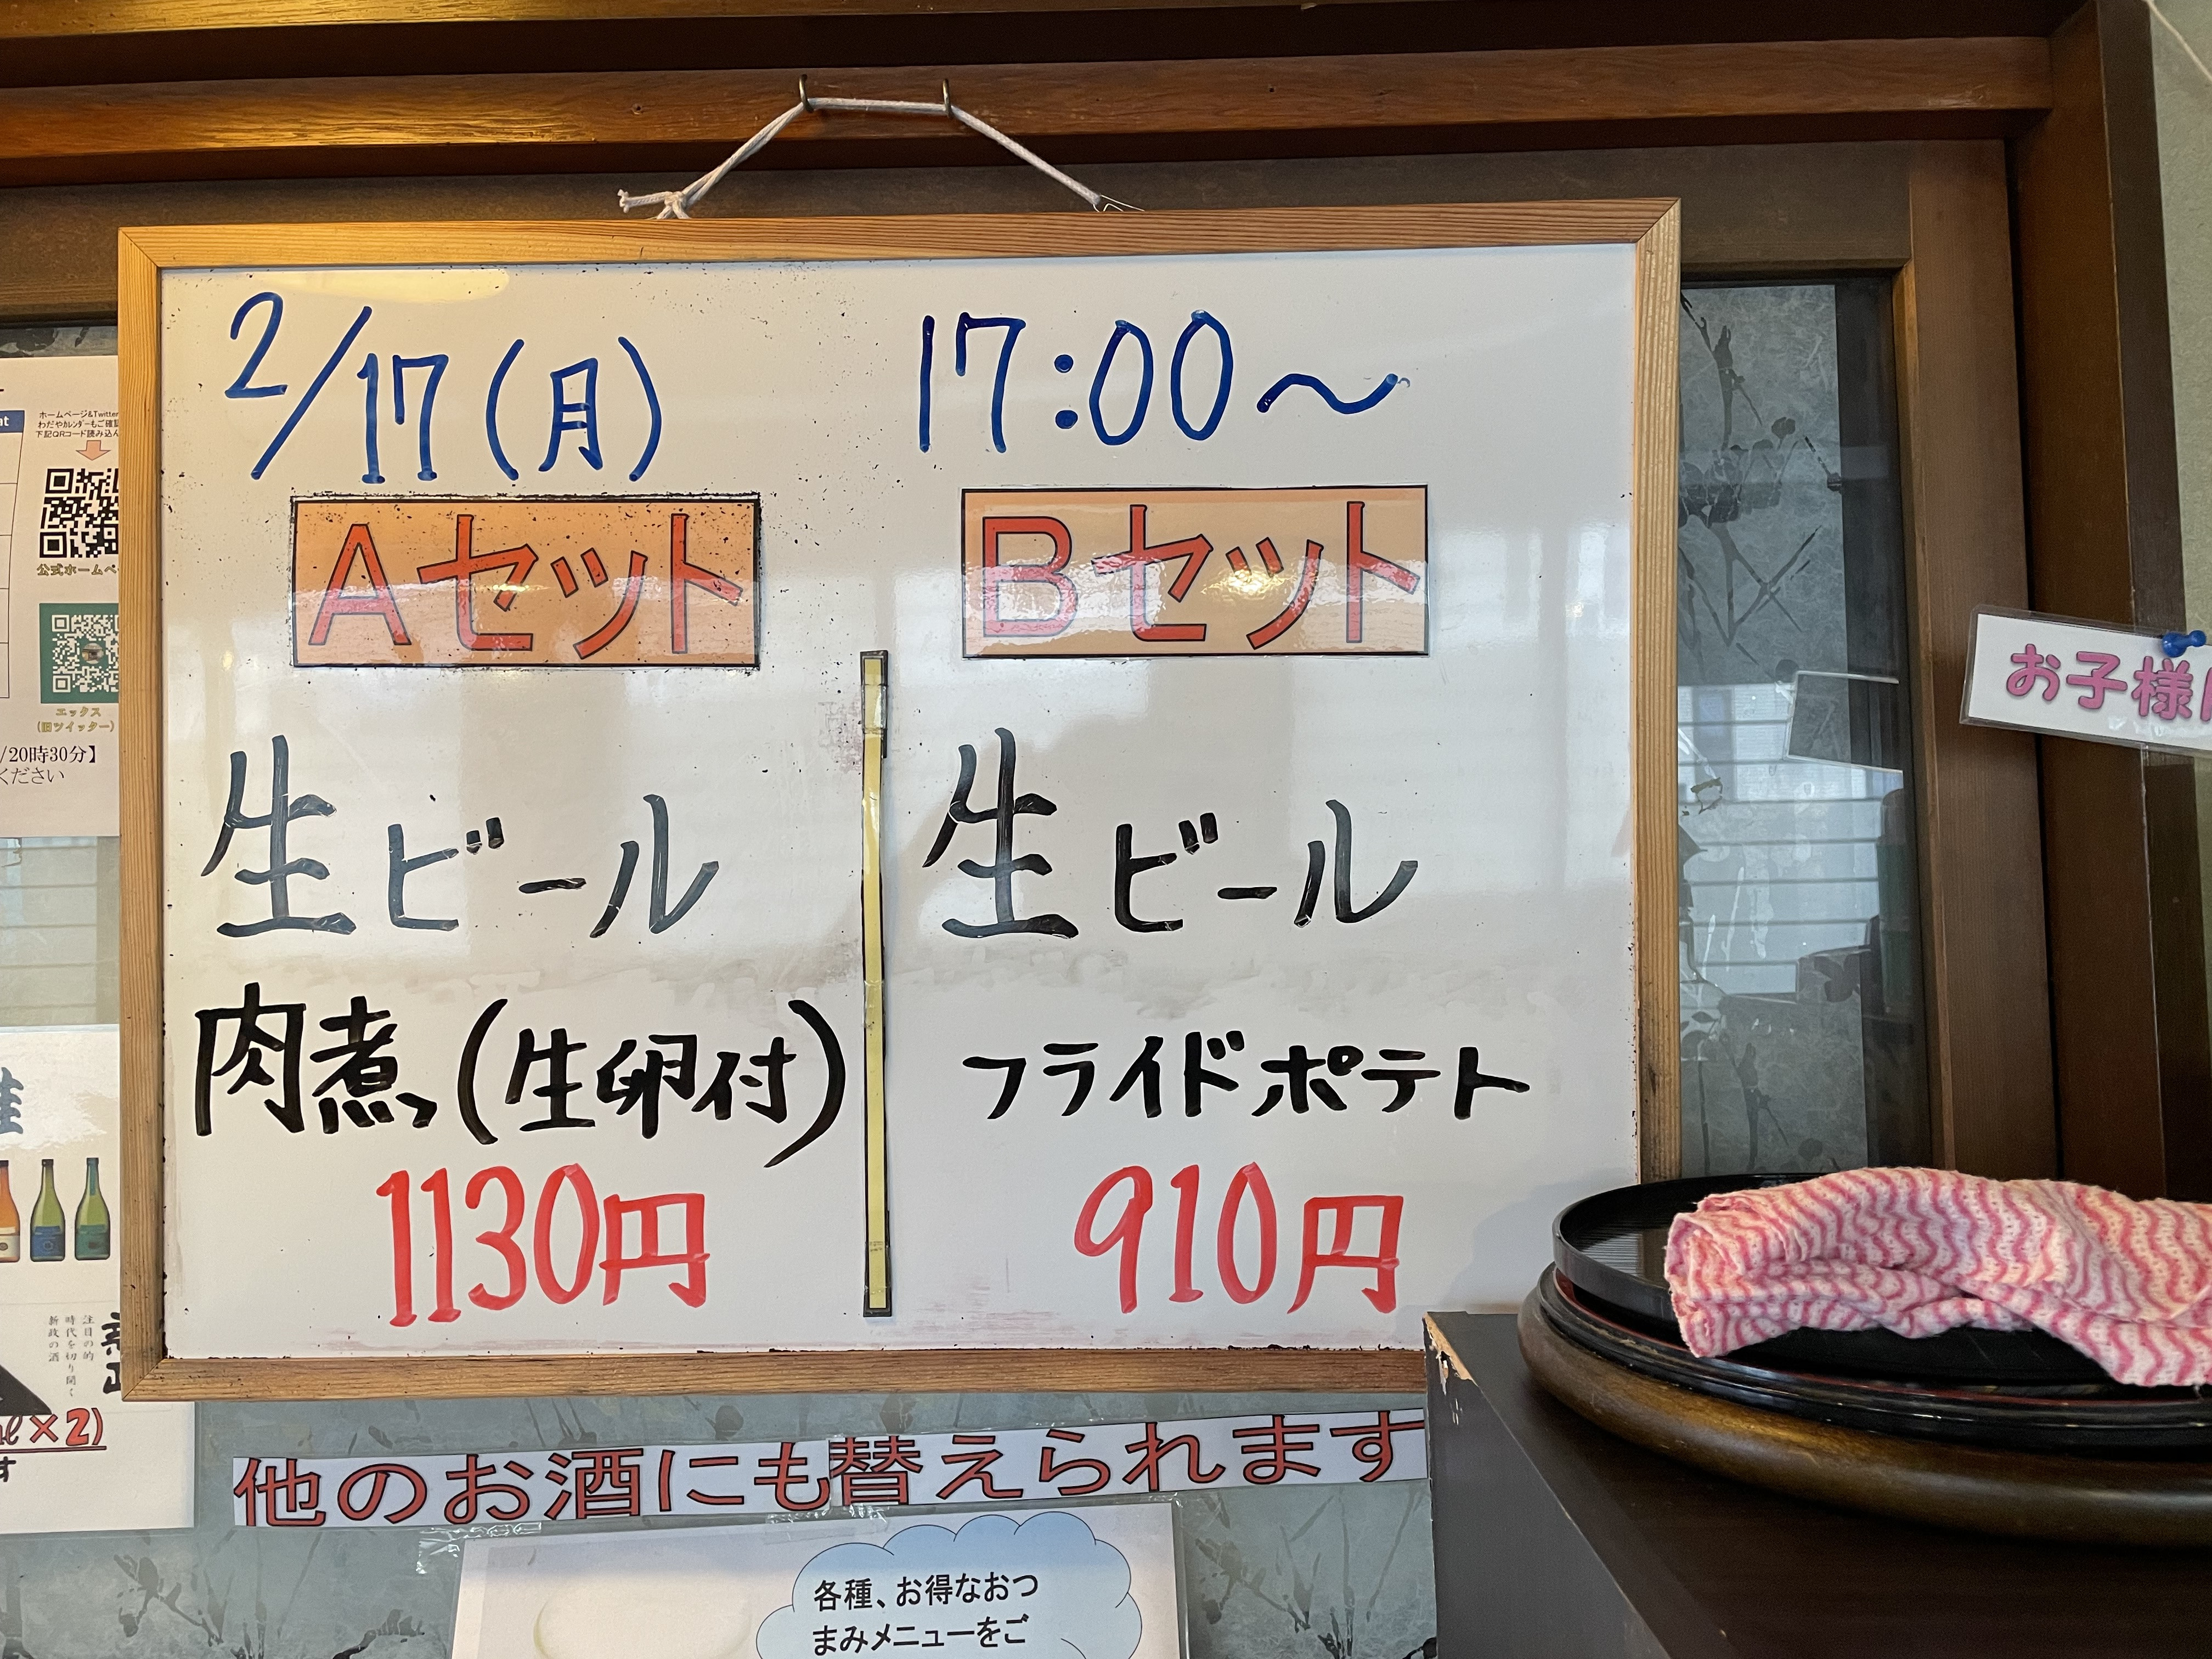 2/17(月) 17:00～
Aセット
Bセット
生ビール
肉煮(生卵付)
1130円
生ビール
フライドポテト
910円
他のお酒にも替えられます
各種、お得なおつ
まみメニューをご
お子様
ホームページ&Twitter
わだやカレンダーもご確認
下記QRコード読み込ん
公式ホームペ
エックス
(旧ツイッター)
/20時30分】
ください
注目の的
時代を切り開く
新政の酒
×2)
す